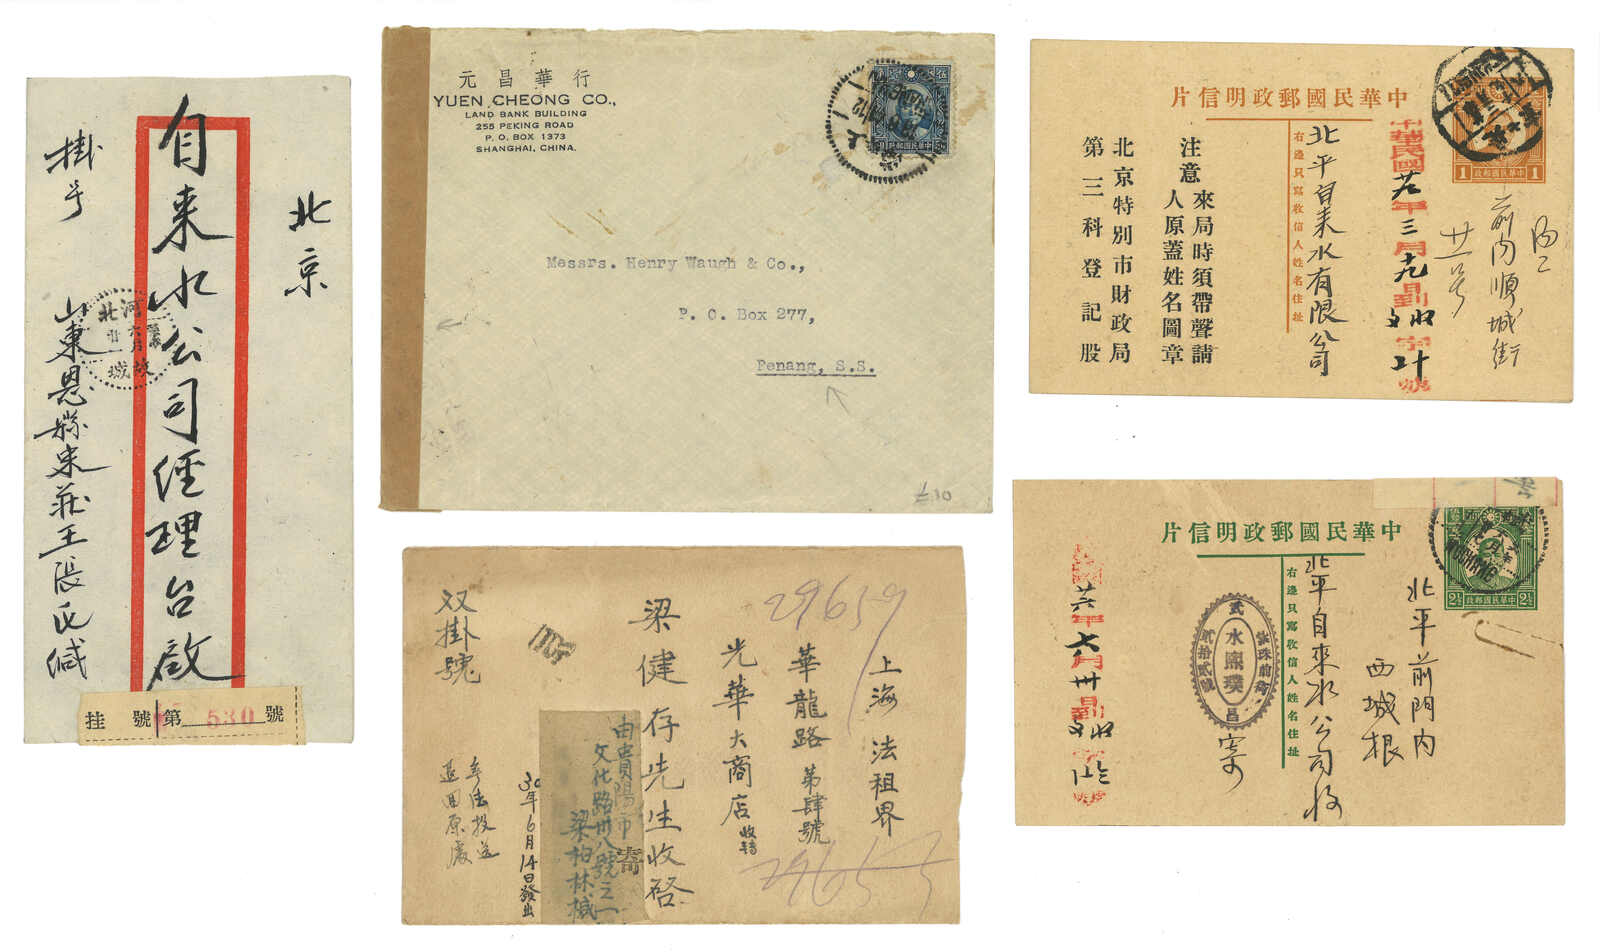 北京
自来水公司經理台啟
掛号
山東恩縣宋莊王張氏缄
河北
故城
挂號第 530 號
元昌華行
YUEN CHEONG CO.,
LAND BANK BUILDING
255 PEKING ROAD
P. O. BOX 1373
SHANGHAI, CHINA.
Messrs. Henry Waugh & Co.,
P. O. Box 277,
Penang, S.S.
£10
上海法租界
華龍路第肆號
光華大商店收轉
梁健存先生收啓
双掛號
由貴陽市
文化路卅八號之一
梁柏林緘
寄
30年6月14日發出
無法投送
退回原處
29659
29657
中華民國郵政明信片
右邊只寫收信人姓名住址
1 中華民國郵政 1
前內順城街
廿号
北平自来水有限公司
中華民國 年三月 九日到
注意
來局時須帶聲請
人原蓋姓名圖章
北京特別市財政局
第三科登記股
中華民國郵政明信片
右邊只寫收信人姓名住址
2½ 中華民國郵政 2½
WUCHANG
北平前門內
西城根
北平自來水公司收
武昌
水陶璞
貳拾貳號
寄
民國 廿六年七月卅日到